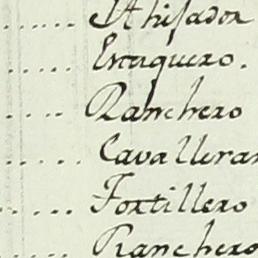 ...... Ahijador
..... Estaquero.
.... Ranchero
..... Cavalleran
..... Fortillero
..... Ranchero